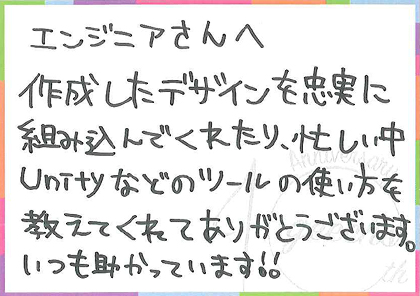 エンジニアさんへ
作成したデザインを忠実に
組み込んでくれたり、忙しい中
Unityなどのツールの使い方を
教えてくれてありがとうございます。
いつも助かっています!!
Anniversary
th